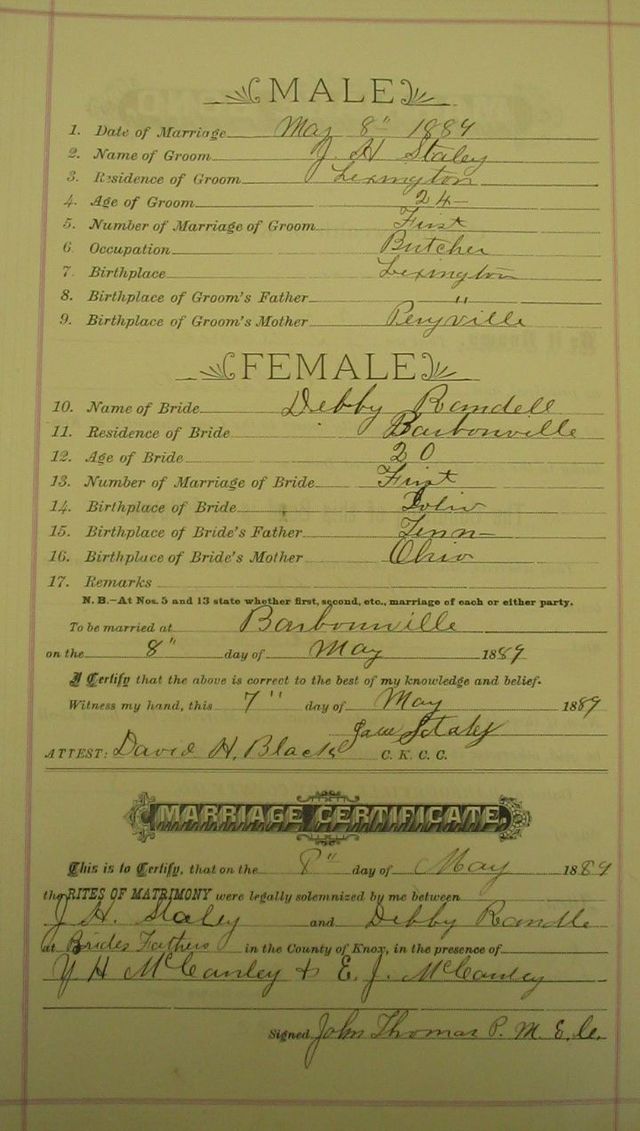 MALE
1. Date of Marriage May 8" 1889
2. Name of Groom J. H Staley
3. Residence of Groom Lexington
4. Age of Groom 24
5. Number of Marriage of Groom First
6. Occupation Butcher
7. Birthplace Lexington
8. Birthplace of Groom's Father "
9. Birthplace of Groom's Mother Perryville
FEMALE
10. Name of Bride Debby Randell
11. Residence of Bride Barbourville
12. Age of Bride 20
13. Number of Marriage of Bride First
14. Birthplace of Bride
15. Birthplace of Bride's Father Tenn
16. Birthplace of Bride's Mother Ohio
17. Remarks
N. B.—At Nos. 5 and 13 state whether first, second, etc., marriage of each or either party.
To be married at Barbourville
on the 8" day of May 1889
I Certify that the above is correct to the best of my knowledge and belief.
Witness my hand, this 7" day of May 1889
Staley
ATTEST: David H. Black C. K. C. C.
MARRIAGE CERTIFICATE.
This is to Certify, that on the 8" day of May 1889
the RITES OF MATRIMONY were legally solemnized by me between
J. H. Staley and Debby Randle
at Brides Fathers in the County of Knox, in the presence of
H McCauley & E. J. McCauley
Signed John Thomas P. M. E. C.